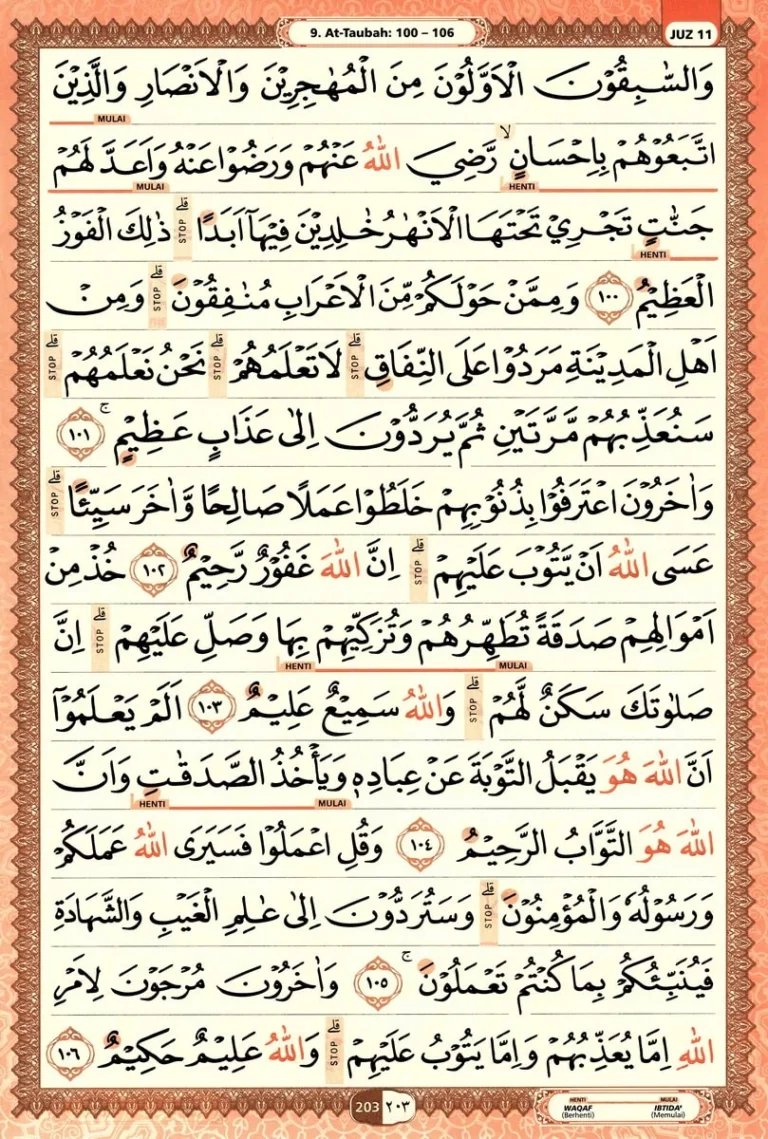 9. At-Taubah: 100 – 106
JUZ 11
وَالسّٰبِقُوْنَ الْاَوَّلُوْنَ مِنَ الْمُهٰجِرِيْنَ وَالْاَنْصَارِ وَالَّذِيْنَ
MULAI
اتَّبَعُوْهُمْ بِاِحْسَانٍۙ رَّضِيَ اللّٰهُ عَنْهُمْ وَرَضُوْا عَنْهُ وَاَعَدَّ لَهُمْ
HENTI MULAI
جَنّٰتٍ تَجْرِيْ تَحْتَهَا الْاَنْهٰرُ خٰلِدِيْنَ فِيْهَآ اَبَدًاۗ STOP ذٰلِكَ الْفَوْزُ
HENTI
الْعَظِيْمُ ١٠٠ وَمِمَّنْ حَوْلَكُمْ مِّنَ الْاَعْرَابِ مُنٰفِقُوْنَۗ STOP وَمِنْ
اَهْلِ الْمَدِيْنَةِ مَرَدُوْا عَلَى النِّفَاقِۗ STOP لَا تَعْلَمُهُمْۗ STOP نَحْنُ نَعْلَمُهُمْۗ STOP
سَنُعَذِّبُهُمْ مَّرَّتَيْنِ ثُمَّ يُرَدُّوْنَ اِلٰى عَذَابٍ عَظِيْمٍۚ ١٠١
وَاٰخَرُوْنَ اعْتَرَفُوْا بِذُنُوْبِهِمْ خَلَطُوْا عَمَلًا صَالِحًا وَّاٰخَرَ سَيِّئًاۗ STOP
عَسَى اللّٰهُ اَنْ يَّتُوْبَ عَلَيْهِمْۗ STOP اِنَّ اللّٰهَ غَفُوْرٌ رَّحِيْمٌ ١٠٢ خُذْ مِنْ
اَمْوَالِهِمْ صَدَقَةً تُطَهِّرُهُمْ وَتُزَكِّيْهِمْ بِهَا وَصَلِّ عَلَيْهِمْۗ STOP اِنَّ
MULAI HENTI
صَلٰوتَكَ سَكَنٌ لَّهُمْۗ STOP وَاللّٰهُ سَمِيْعٌ عَلِيْمٌ ١٠٣ اَلَمْ يَعْلَمُوْٓا
اَنَّ اللّٰهَ هُوَ يَقْبَلُ التَّوْبَةَ عَنْ عِبَادِهٖ وَيَأْخُذُ الصَّدَقٰتِ وَاَنَّ
MULAI HENTI
اللّٰهَ هُوَ التَّوَّابُ الرَّحِيْمُ ١٠٤ وَقُلِ اعْمَلُوْا فَسَيَرَى اللّٰهُ عَمَلَكُمْ
وَرَسُوْلُهٗ وَالْمُؤْمِنُوْنَۗ STOP وَسَتُرَدُّوْنَ اِلٰى عٰلِمِ الْغَيْبِ وَالشَّهَادَةِ
فَيُنَبِّئُكُمْ بِمَا كُنْتُمْ تَعْمَلُوْنَۚ ١٠٥ وَاٰخَرُوْنَ مُرْجَوْنَ لِاَمْرِ
اللّٰهِ اِمَّا يُعَذِّبُهُمْ وَاِمَّا يَتُوْبُ عَلَيْهِمْۗ STOP وَاللّٰهُ عَلِيْمٌ حَكِيْمٌ ١٠٦
203 ٢٠٣
HENTI MULAI
WAQAF IBTIDA'
(Berhenti) (Memulai)